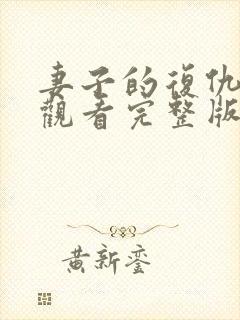 妻子的復仇
觀看完整版
黃新鑾